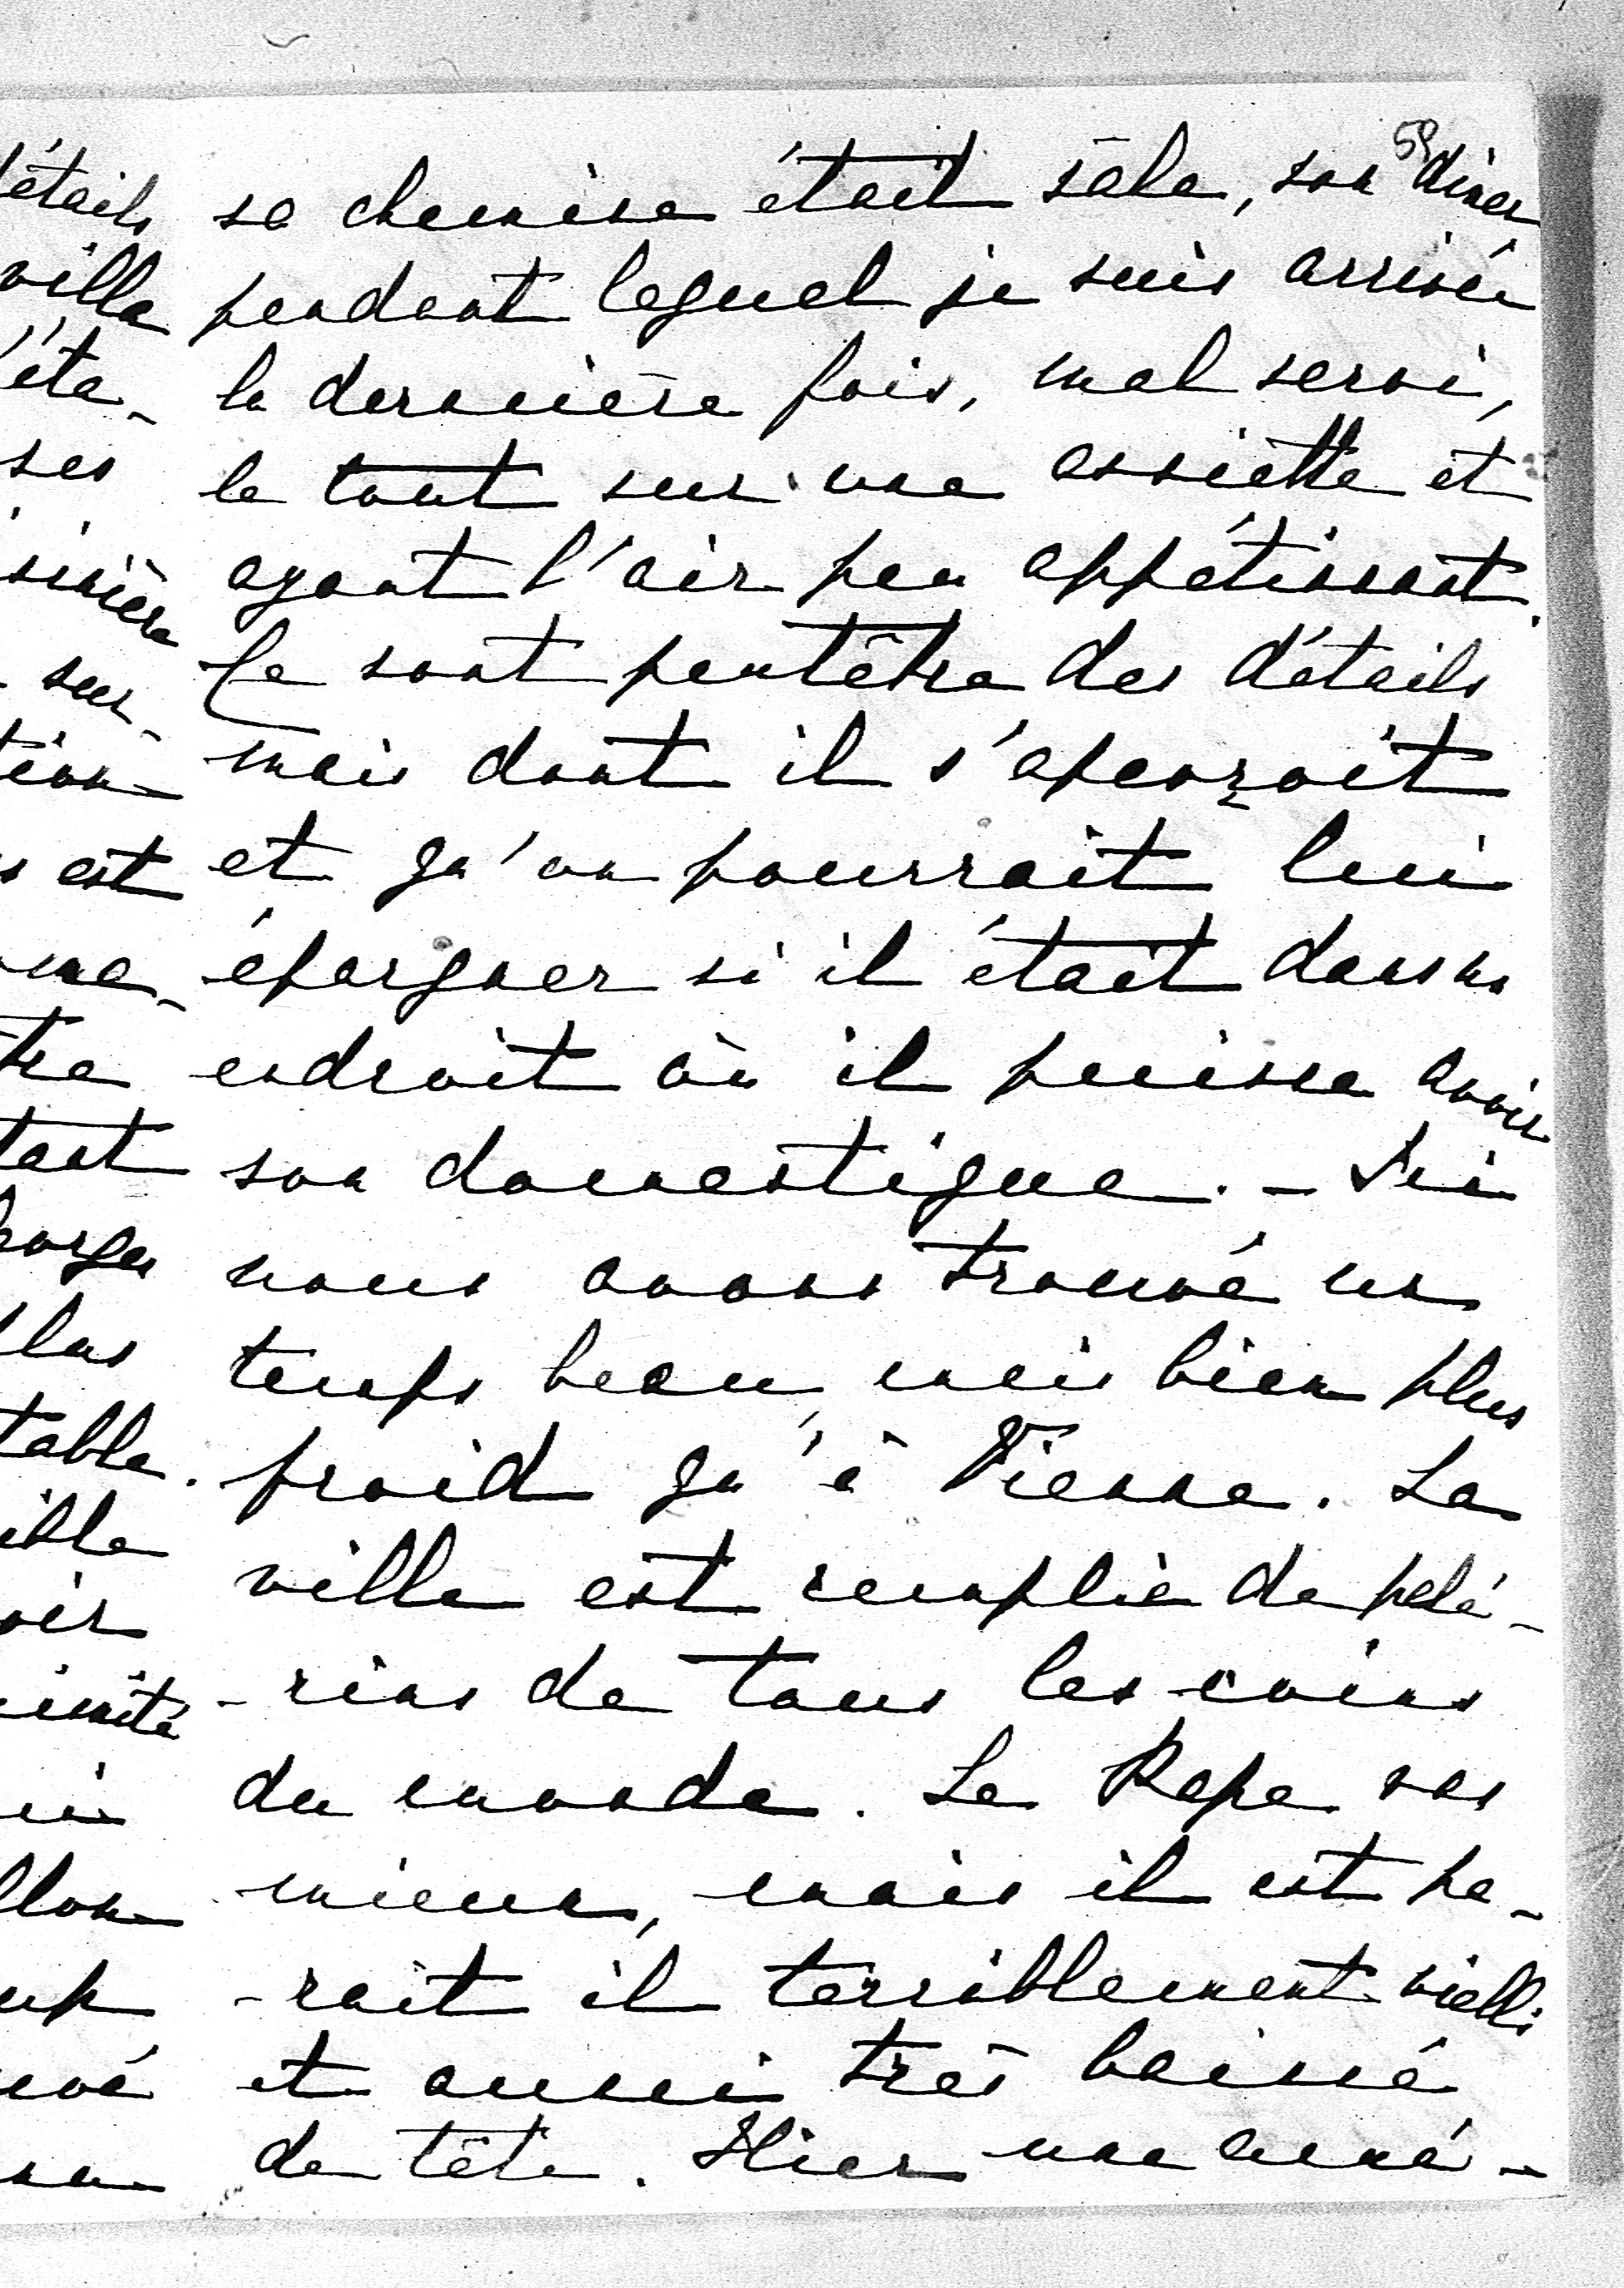 58
sa chemise était sâle, son diner
pendant lequel je suis arrivée
la dernière fois, mal servi,
le tout sur une assiette et
ayant l'air peu appétissant.
Ce sont peutêtre des détails
mais dont il s'aperçoit
et qu'on pourrait lui
épargner si il était dans un
endroit où il puisse avoir
son domestique. – Ici
nous avons trouvé un
temps beau, mais bien plus
froid qu'à Vienne. La
ville est remplie de pélé-
-rins de tous les coins
du monde. Le Pape vas
mieux, mais il est pa-
-rait il terriblement vielli
et aussi très baissé
de tête. Hier une
détails
ville
ses
sur
est
tre
table.